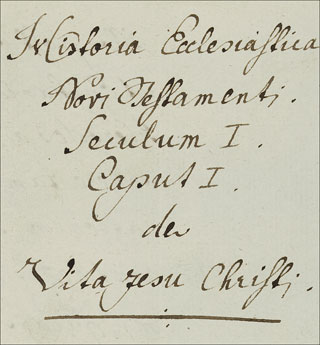 In Historia Ecclesiastica
Novi Testamenti.
Seculum I.
Caput I.
de
Vita Jesu Christi.